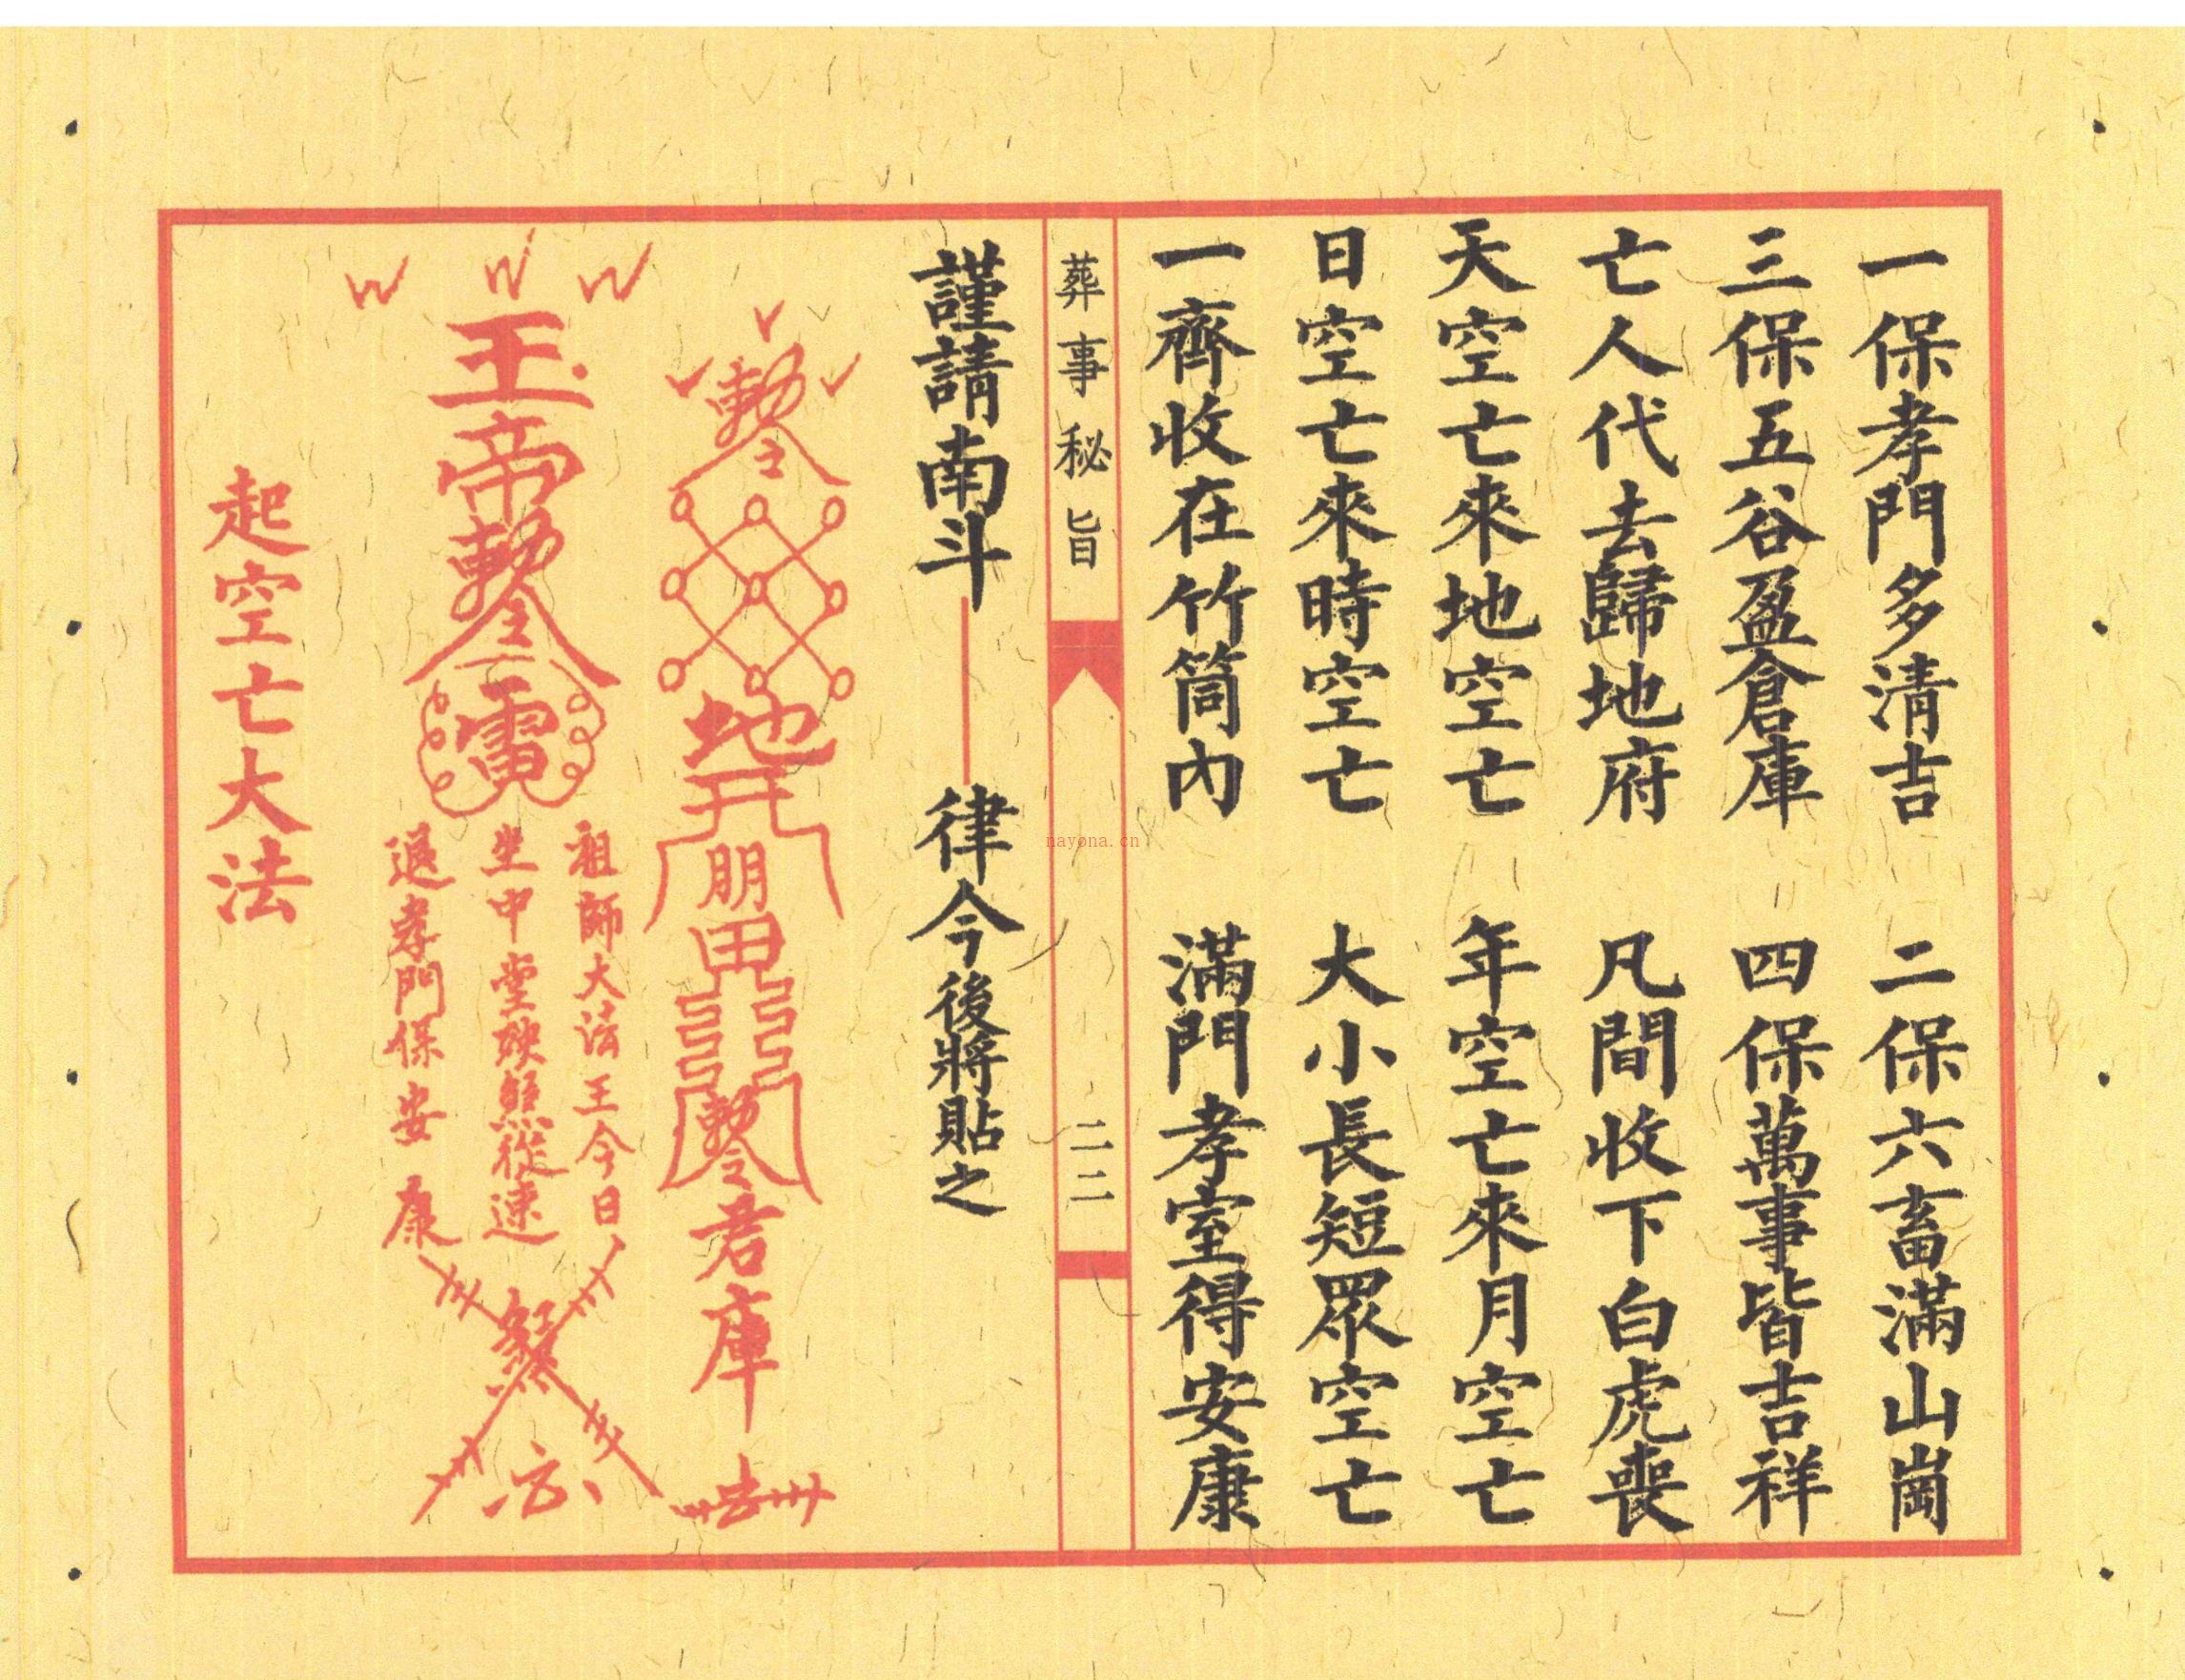 一保孝門多清吉　二保六畜滿山崗
三保五谷盈倉庫　四保萬事皆吉祥
亡人代去歸地府　凡間收下白虎喪
天空亡來地空亡　年空亡來月空亡
日空亡來時空亡　大小長短眾空亡
一齊收在竹筒內　滿門孝室得安康
葬事秘旨　二二
nayona.cn
謹請南斗——律令後將貼之
勅令
地
朋
勅令
君庫
去
玉帝勅令
雷
祖師大法王今日
坐中堂殃煞從速
退孝門保安康
起空亡大法